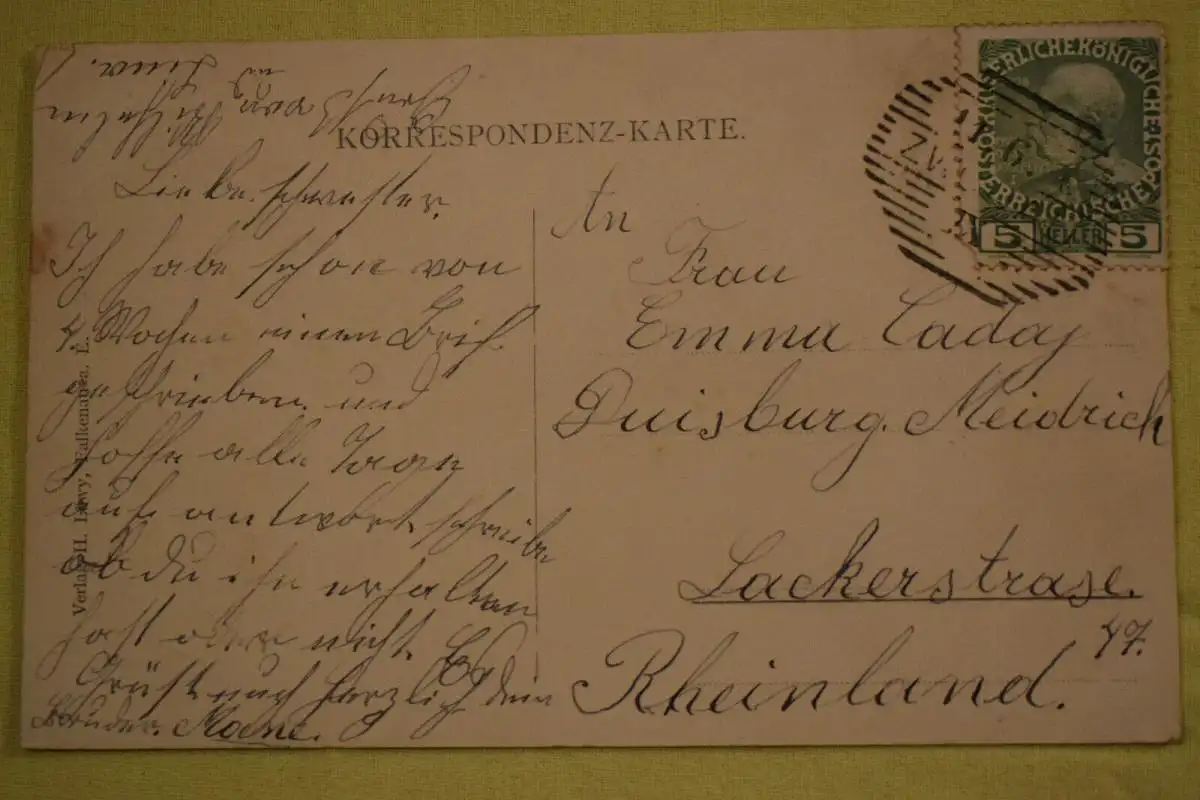 KORRESPONDENZ-KARTE.
Liebe schwester.
Ich habe schon von
4. Wochen einen Brif.
geschrieben. und
hoffe alle Tage
auf antwort schreibe
ob du ihn erhalten
hast oder nicht. Es
Grüst euch herzlich dein
Bruder.
Gruß von Wilhelm
und
An
Frau
Emma Caday
Duisburg. Meidrich
Lackerstrase.
47.
Rheinland.
Verlag H. Löwy, Falkenau a. E.
KAISERLICHEKÖNIGLICHE
ÖSTERREICHISCHE POST
5 HELLER 5